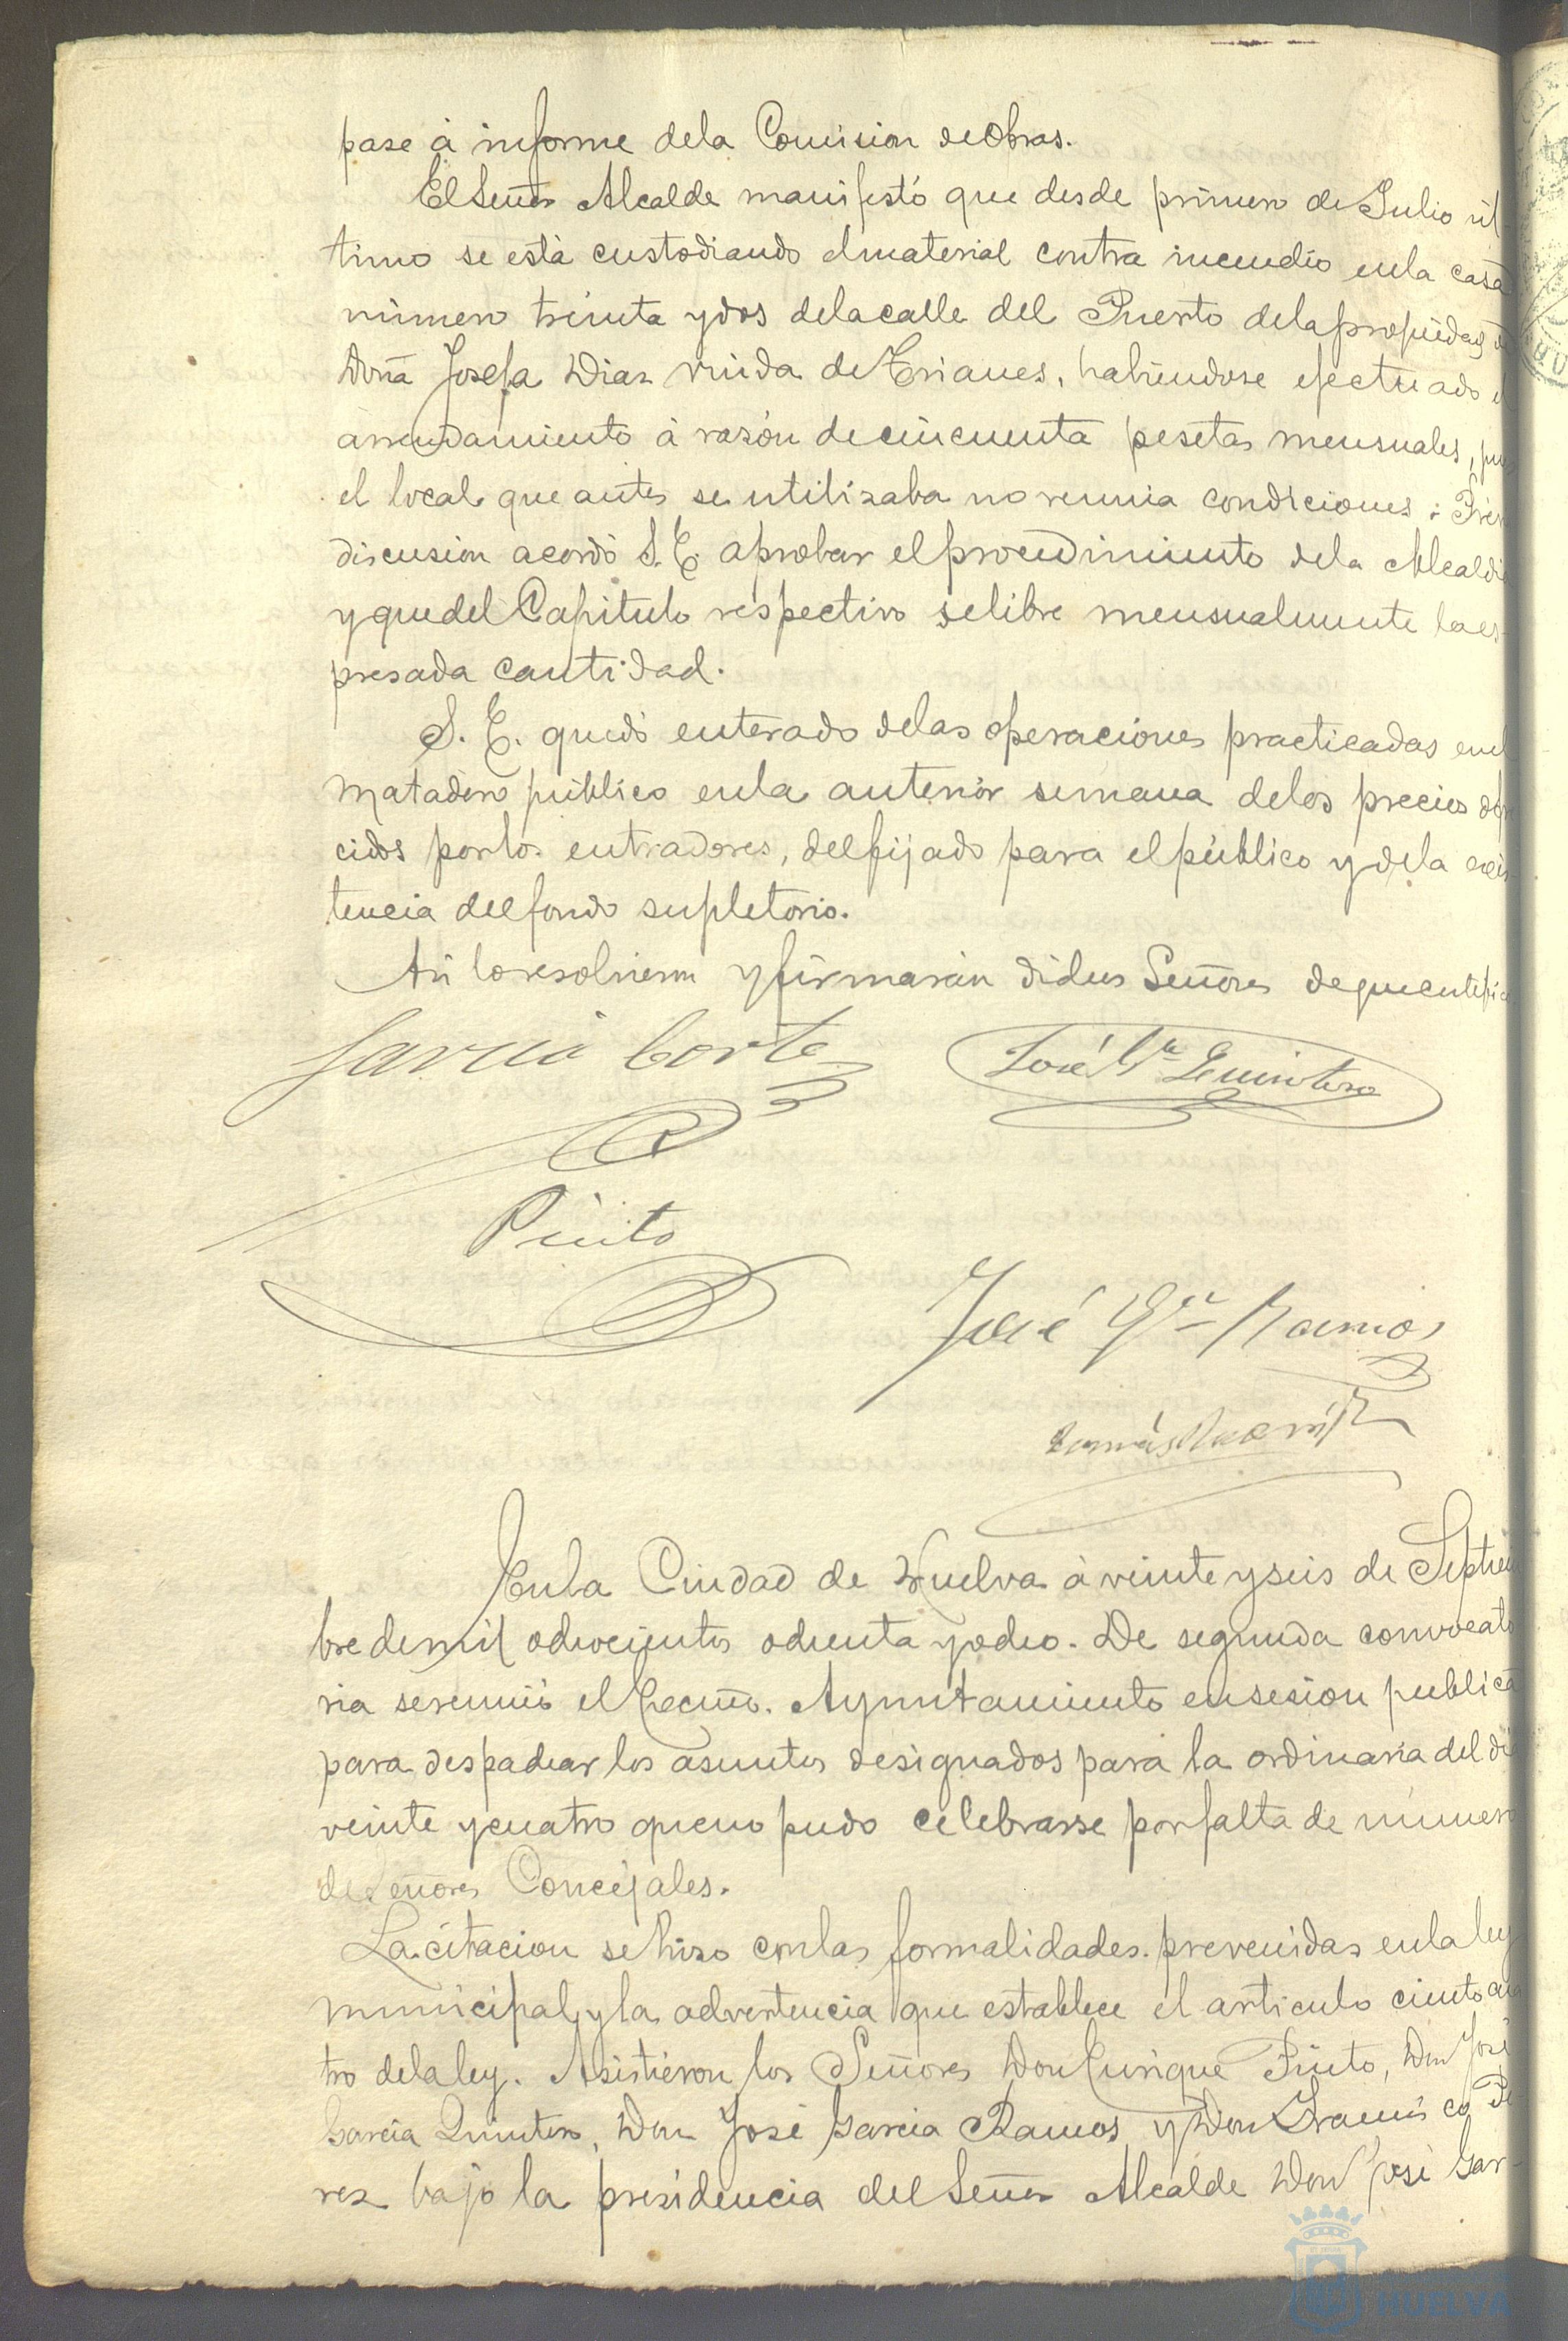 pase á informe dela Comision de Obras.
El Señor Alcalde manifestó que desde primero de Julio úl
timo se está custodiando el material contra incendio en la casa
número treinta y dos de la calle del Puerto de la propiedad
Doña Josefa Diaz viuda de Trianes, habiendose efectuado
arrendamiento á razón de cincuenta pesetas mensuales,
el local que antes se utilizaba no reunia condiciones:
discusion acordó S. E. aprobar el procedimiento de la Alcaldi
y que del Capitulo respectivo se libre mensualmente la es
presada cantidad.
S. E. quedó enterado de las operaciones practicadas en el
matadero público en la anterior semana de los precios
cidos por los entradores, del fijado para el público y de la exis
tencia del fondo supletorio.
Asi lo resolvieron y firmarán dichos Señores de que certifico
Garcia Cortes
José Gª Quintero
Pinto
José Gª Ramos
En la Ciudad de Huelva á veinte y seis de Septiem
bre de mil ochocientos ochenta y ocho. De segunda convocato
ria se reunió el Excmo. Ayuntamiento en sesion publica
para despachar los asuntos designados para la ordinaria del di
veinte y cuatro que no pudo celebrarse por falta de numero
de Señores Concejales.
La citacion se hizo con las formalidades prevenidas en la ley
municipal y la advertencia que establece el articulo ciento cua
tro de la ley. Asistieron los Señores Don Enrique Pinto, Don José
Garcia Quintero, Don José Garcia Ramos y Don Francisco Pe
rez bajo la presidencia del Señor Alcalde Don José Gar-
HUELVA